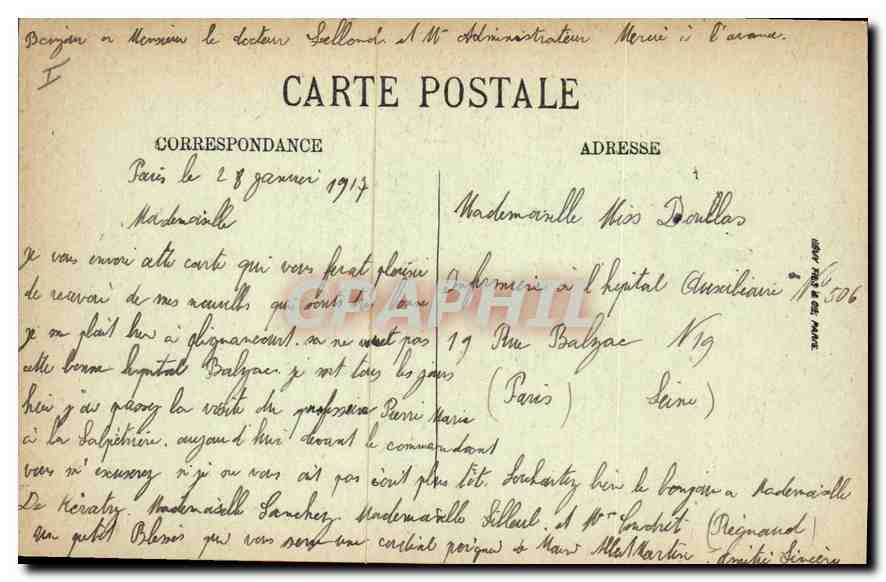 Bonjour a Monsieur le docteur et Mr Administrateur Merci à l'avance.
I
CARTE POSTALE
CORRESPONDANCE
ADRESSE
Paris le 28 janvier 1917
Mademoiselle
Mademoiselle Miss Doullas
infirmiere a l'hopital Auxiliaire No 506
19 Rue Balzac N 19
(Paris) Seine)
Je vous envoie cette carte qui vous ferat plaisir
de recevoir de mes nouvelles qui sont de bonne
je me plait bien à Clignancourt. sa ne vaut pas
cette bonne hopital Balzac. je sort tous les jours
hier j'ai passez la visite du professeur Pierre Marie
à la Salpétriere. aujourd'hui devant le commandant
vous m'excuserez si je ne vous ait pas écrit plus tôt. Souhaitez bien le bonjour a Mademoiselle
De Kératry. Mademoiselle Sanchez Mademoiselle Lilleul. et Mr (Régnaud)
un petit Blessés que vous serre une cordial poignee de Main Albert Martin. Amitié Sincère
LEVY FILS & CIE, PARIS
CPAPHIL